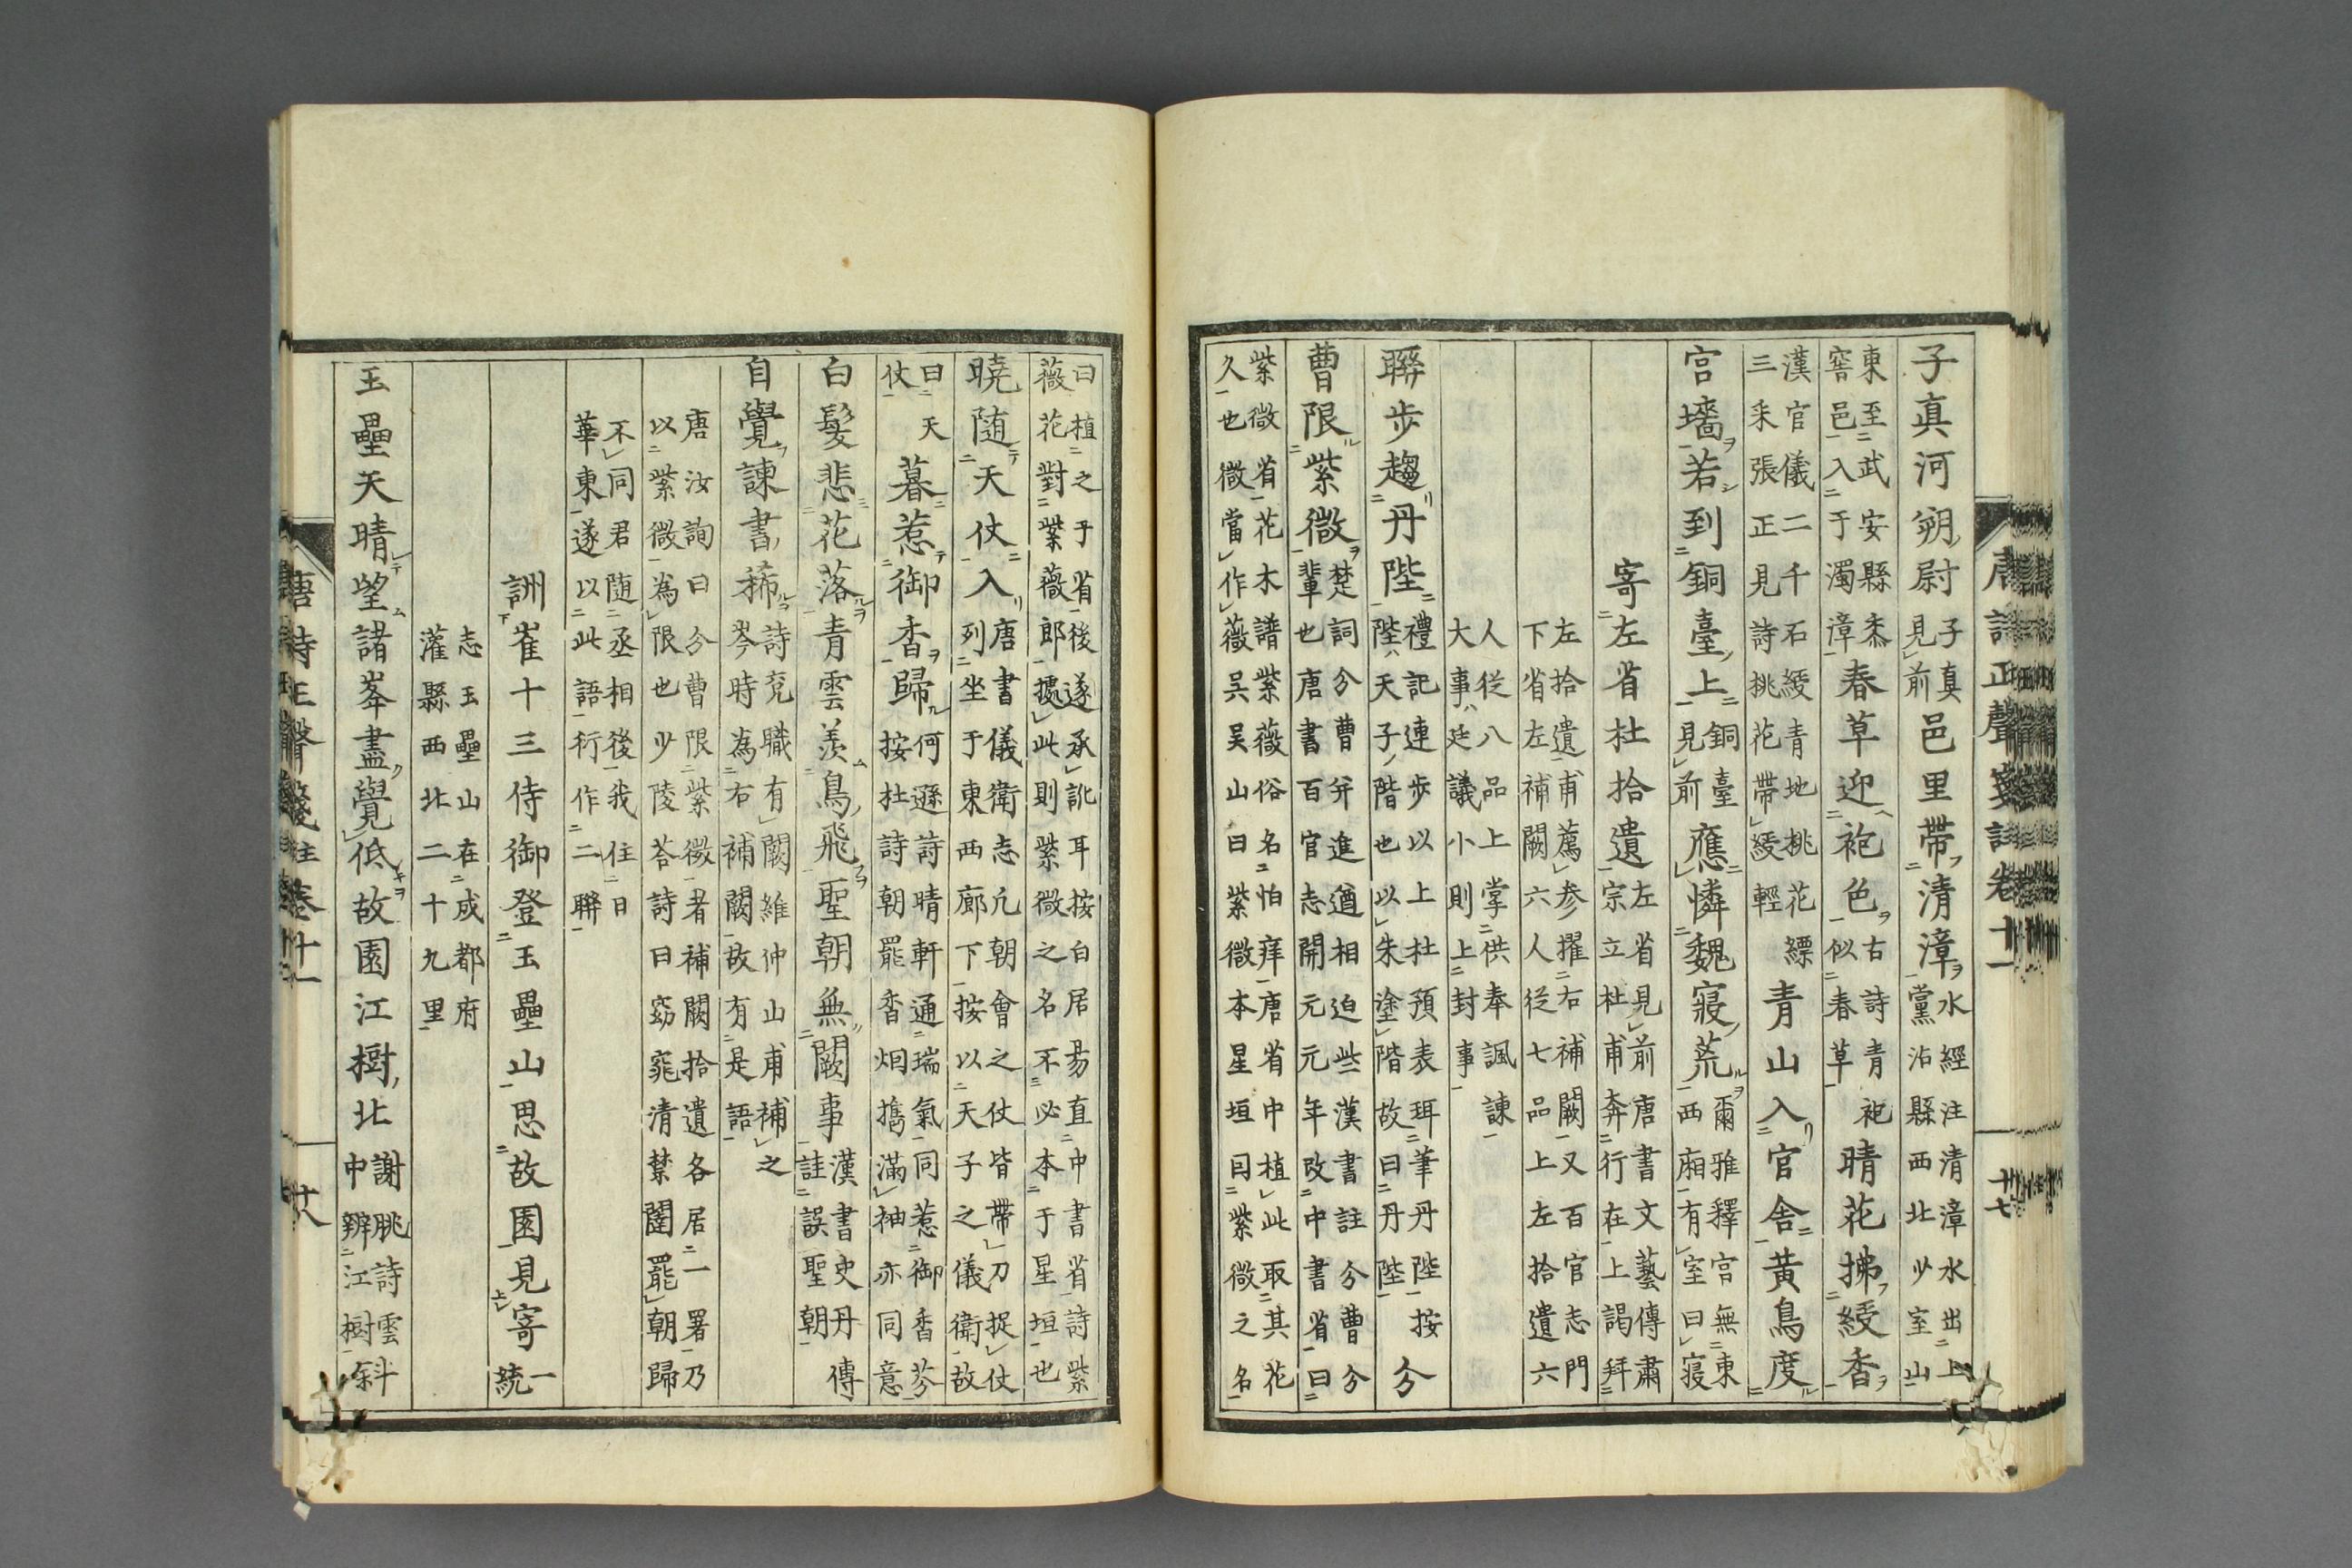 唐詩正聲箋註卷十一
廿七
子真河朔尉子真見前邑里帶清漳水經注清漳水出上黨沾縣西北少室山
東至武安縣黍窖邑入于濁漳春草迎袍色古詩青袍似春草晴花拂綬香
漢官儀二千石綬青地桃花縹三采張正見詩桃花帶綬輕青山入官舍黃鳥度
宮墻若到銅臺上銅臺見前應憐魏寢荒爾雅釋宮無東西廂有室曰寢
寄左省杜拾遺左省見前唐書文藝傳肅宗立杜甫奔行在上謁拜
左拾遺甫薦参擢右補闕又百官志門下省左補闕六人從七品上左拾遺六
人從八品上掌供奉諷諫大事廷議小則上封事
聯步趨丹陛禮記連步以上杜預表珥筆丹陛按陛天子階也以朱塗階故曰丹陛分
曹限紫微楚詞分曹并進遒相迫些漢書註分曹分輩也唐書百官志開元元年改中書省曰
紫微省花木譜紫薇俗名怕痒唐省中植此取其花久也微當作薇吳吴山曰紫微本星垣曰紫微之名
曰植之于省後遂承訛耳按白居易直中書省詩紫薇花對紫薇郎據此則紫微之名不必本于星垣也
曉随天仗入唐書儀衛志凢朝會之仗皆帶刀捉仗列坐于東西廊下按以天子之儀衛故
曰天仗暮惹御香歸何遜詩晴軒通瑞氣同惹御香芬按杜詩朝罷香烟擕滿袖亦同意
白髮悲花落青雲羨鳥飛聖朝無闕事漢書史丹傳註誤聖朝
自覺諫書稀詩兗職有闕維仲山甫補之岑時為右補闕故有是語
唐汝詢曰分曹限紫微者補闕拾遺各居一署乃以紫微為限也少陵荅詩曰窈窕清禁闥罷朝歸
不同君随丞相後我住日華東遂以此語衍作二聯
詶崔十三侍御登玉壘山思故園見寄一統
志玉壘山在成都府灌縣西北二十九里
玉壘天晴望諸峯盡覺低故園江樹北謝朓詩雲中辨江樹斜
唐詩正聲箋註卷十一
廿八